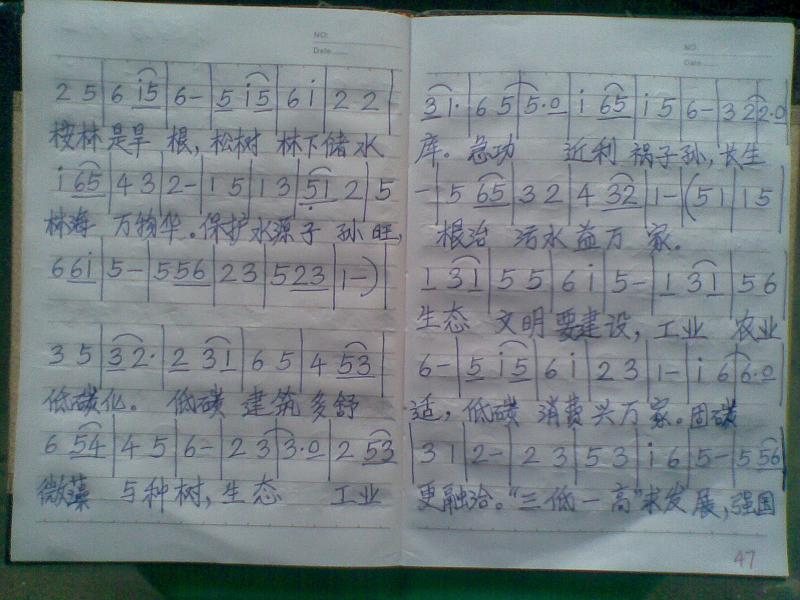 NO:
Date
NO:
Date
2 5 | 6 i5 | 6- | 5 i5 | 6 i | 2 2 |
31· | 6 5 | 5·0 | i 65 | i 5 | 6- | 3 2 | 2·0
桉林是旱 根, 松树 林下储水
库。急功 近利 祸子孙, 长生
i 65 | 4 3 | 2- | 1 5 | 1 3 | 51 2 | 5
- | 5 65 | 3 2 | 4 32 | 1- | (5 1 | 1 5
林海 万物华。保护水源子 孙旺,
根治 污水益万 家。
6 6i | 5- | 5 56 | 2 3 | 5 23 | 1-)
1 31 | 5 5 | 6 i | 5- | 1 31 | 5 6
生态 文明 要建设, 工业 农业
3 5 | 32· | 2 31 | 6 5 | 4 53
6- | 5 i5 | 6 i | 2 3 | 1- | i 6 | 6·0
低碳化。 低碳 建筑 多舒
适, 低碳 消费兴万家。固碳
6 54 | 4 5 | 6- | 2 3 | 3·0 | 2 53
3 1 | 2- | 2 3 | 5 3 | i 6 | 5- | 5 56
微藻 与种树, 生态 工业
更融洽。“三低一高”求发展, 强国
47